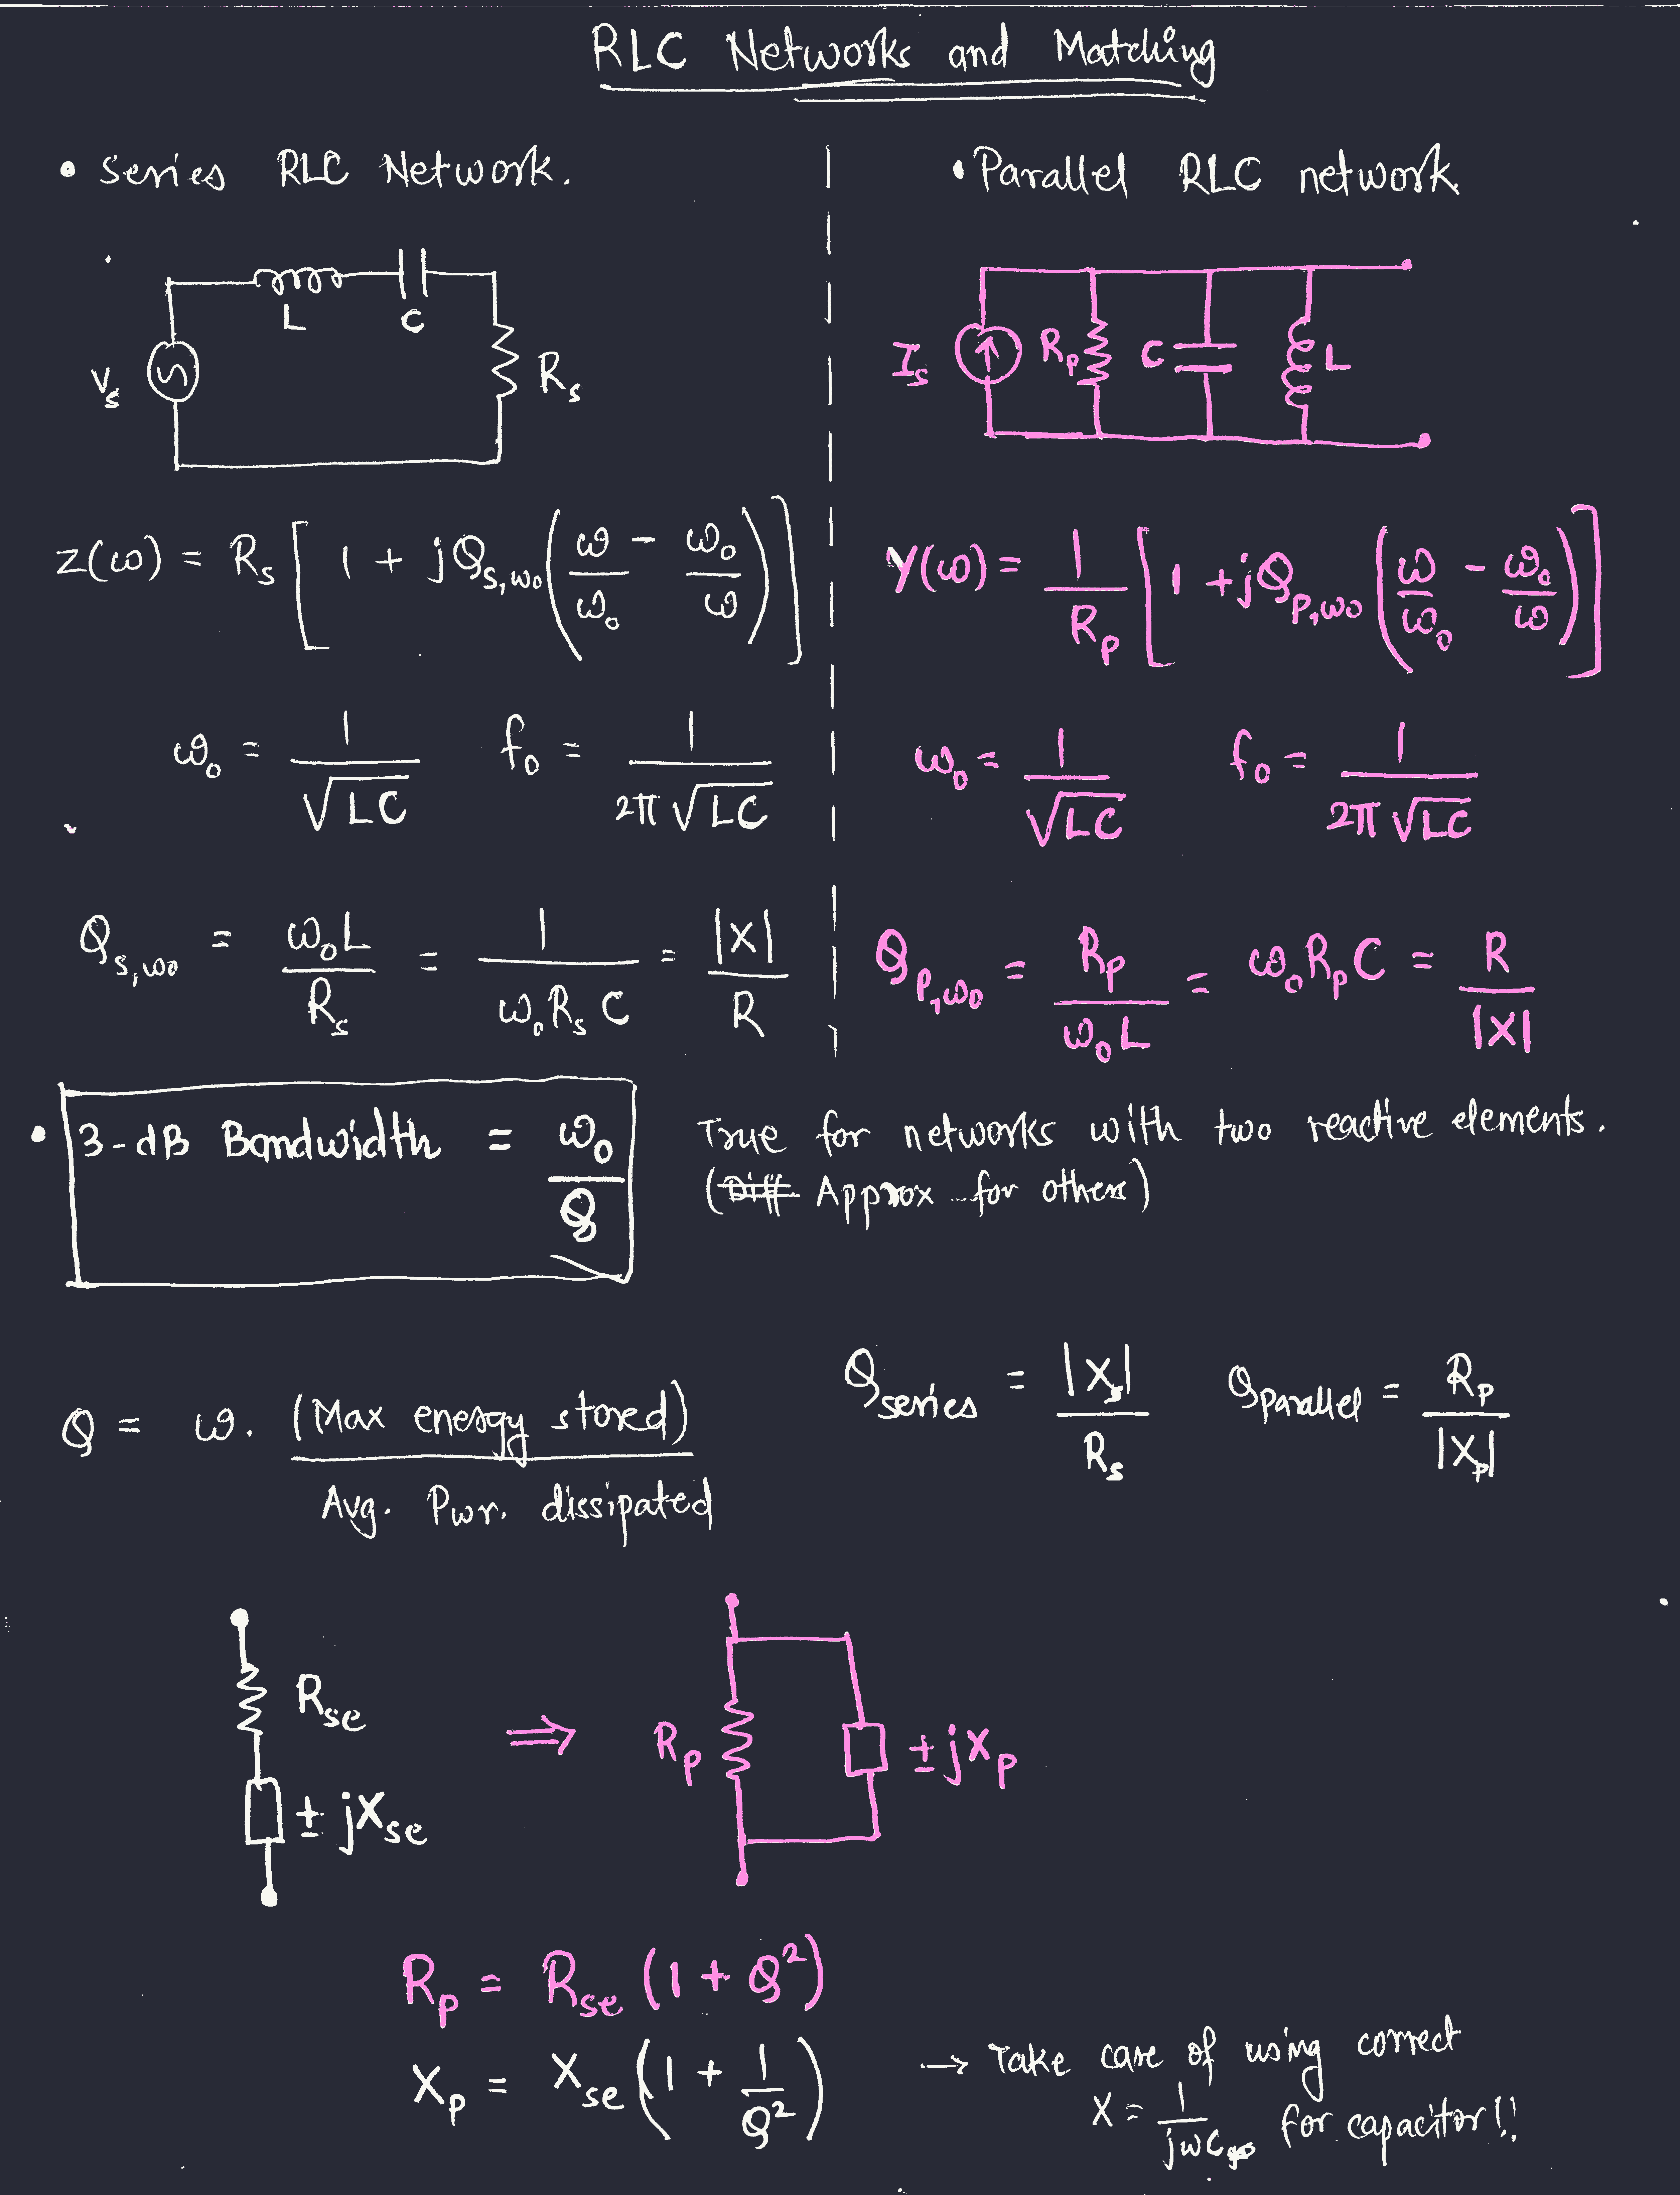 RLC Networks and Matching
• Series RLC Network.
L C
V_s
R_s
Z(ω) = R_s [ 1 + jQ_{s,ω0} ( ω/ω_0 - ω_0/ω ) ]
ω_0 = 1/√LC f_0 = 1/2π√LC
Q_{s,ω0} = ω_0L/R_s = 1/ω_0R_sC = |X|/R
• Parallel RLC network
I_s R_p C L
Y(ω) = 1/R_p [ 1 + jQ_{p,ω0} ( ω/ω_0 - ω_0/ω ) ]
ω_0 = 1/√LC f_0 = 1/2π√LC
Q_{p,ω0} = R_p/ω_0L = ω_0R_pC = R/|X|
• 3-dB Bandwidth = ω_0/Q
True for networks with two reactive elements.
(Diff. Approx for others)
Q = ω. (Max energy stored)/Avg. Pwr. dissipated
Q_series = |X_s|/R_s Q_Parallel = R_p/|X_p|
R_se
± jX_se
⇒
R_p ± jX_p
R_p = R_se (1 + Q²)
X_p = X_se (1 + 1/Q²)
→ Take care of using correct
X = 1/jωC for capacitor!!